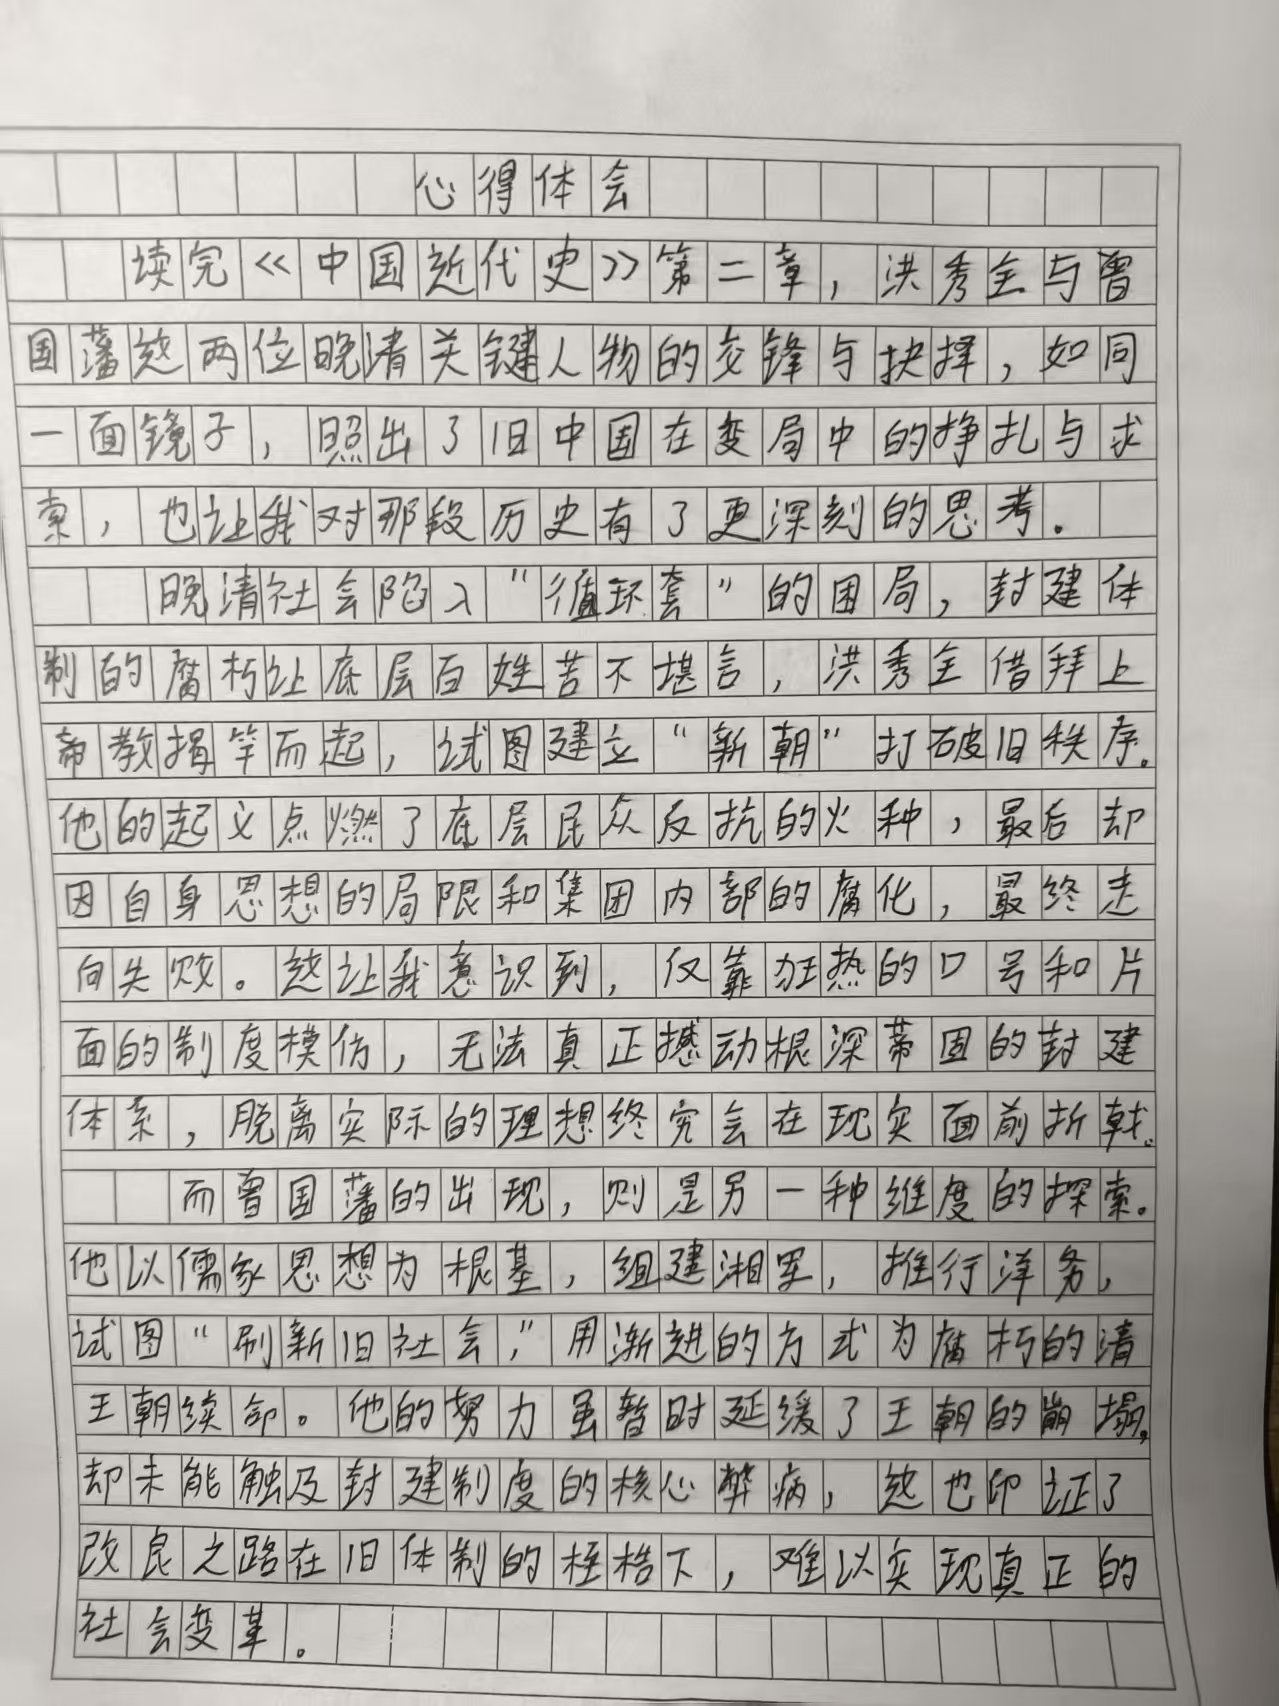 心得体会
读完《中国近代史》第二章，洪秀全与曾
国藩这两位晚清关键人物的交锋与抉择，如同
一面镜子，照出了旧中国在变局中的挣扎与求
索，也让我对那段历史有了更深刻的思考。
晚清社会陷入“循环套”的困局，封建体
制的腐朽让底层百姓苦不堪言，洪秀全借拜上
帝教揭竿而起，试图建立“新朝”打破旧秩序。
他的起义点燃了底层民众反抗的火种，最后却
因自身思想的局限和集团内部的腐化，最终走
向失败。这让我意识到，仅靠狂热的口号和片
面的制度模仿，无法真正撼动根深蒂固的封建
体系，脱离实际的理想终究会在现实面前折戟。
而曾国藩的出现，则是另一种维度的探索。
他以儒家思想为根基，组建湘军，推行洋务，
试图“刷新旧社会，”用渐进的方式为腐朽的清
王朝续命。他的努力虽暂时延缓了王朝的崩塌，
却未能触及封建制度的核心弊病，这也印证了
改良之路在旧体制的桎梏下，难以实现真正的
社会变革。